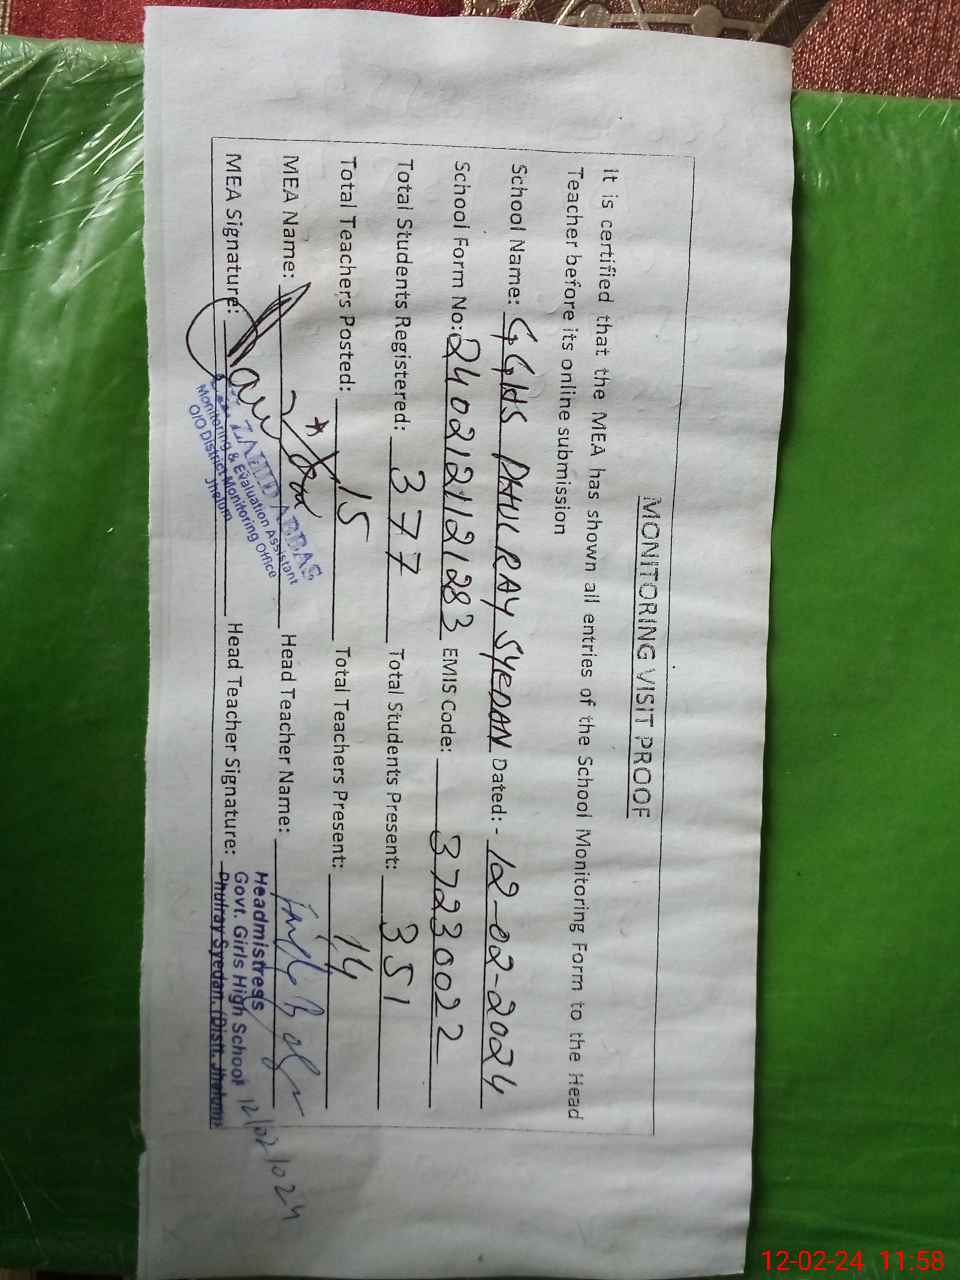 MONITORING VISIT PROOF
It is certified that the MEA has shown all entries of the School Monitoring Form to the Head
Teacher before its online submission
School Name: GGHS PHULRAY SYEDAN Dated:- 12-02-2024
School Form No: 2402121121283 EMIS Code: 37230022
Total Students Registered: 377 Total Students Present: 351
Total Teachers Posted: 15 Total Teachers Present: 14
MEA Name: Head Teacher Name:
MEA Signature: Head Teacher Signature:
ZAHID ABBAS
Monitoring & Evaluation Assistant
O/O District Monitoring Office
Jhelum
Headmistress
Govt. Girls High School
Phulray Syedan, (Distt. Jhelum)
12-02-24 11:58